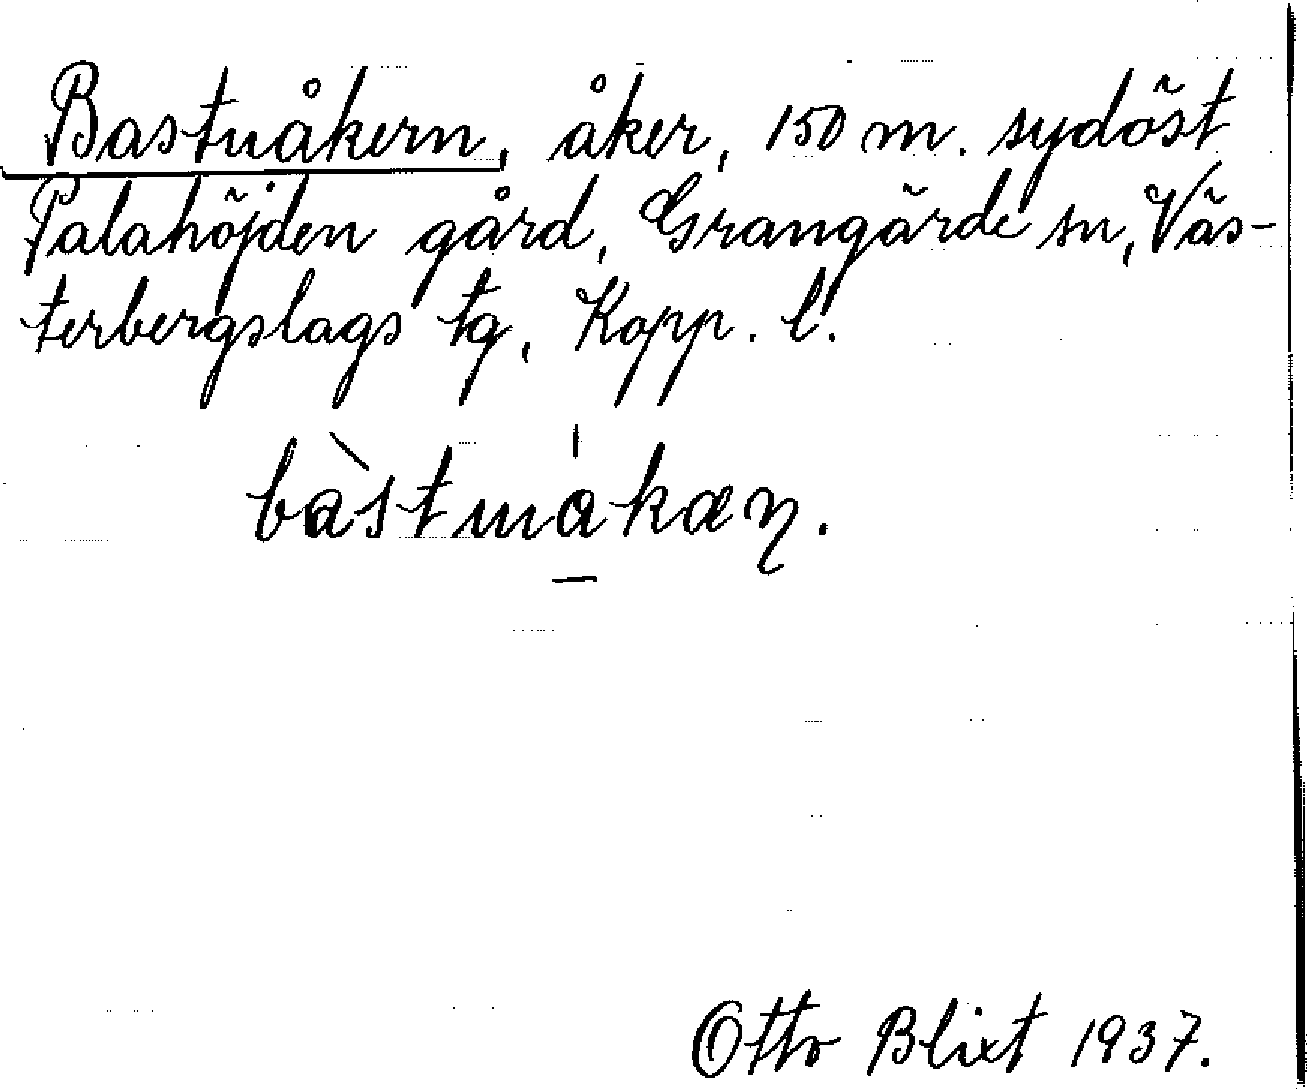 Bastuåkern, åker, 150 m. sydöst
Palahöjden gård, Grangärde sn, Väs-
terbergslags tg, Kopp. l.
bàstuákæn.
Otto Blixt 1937.